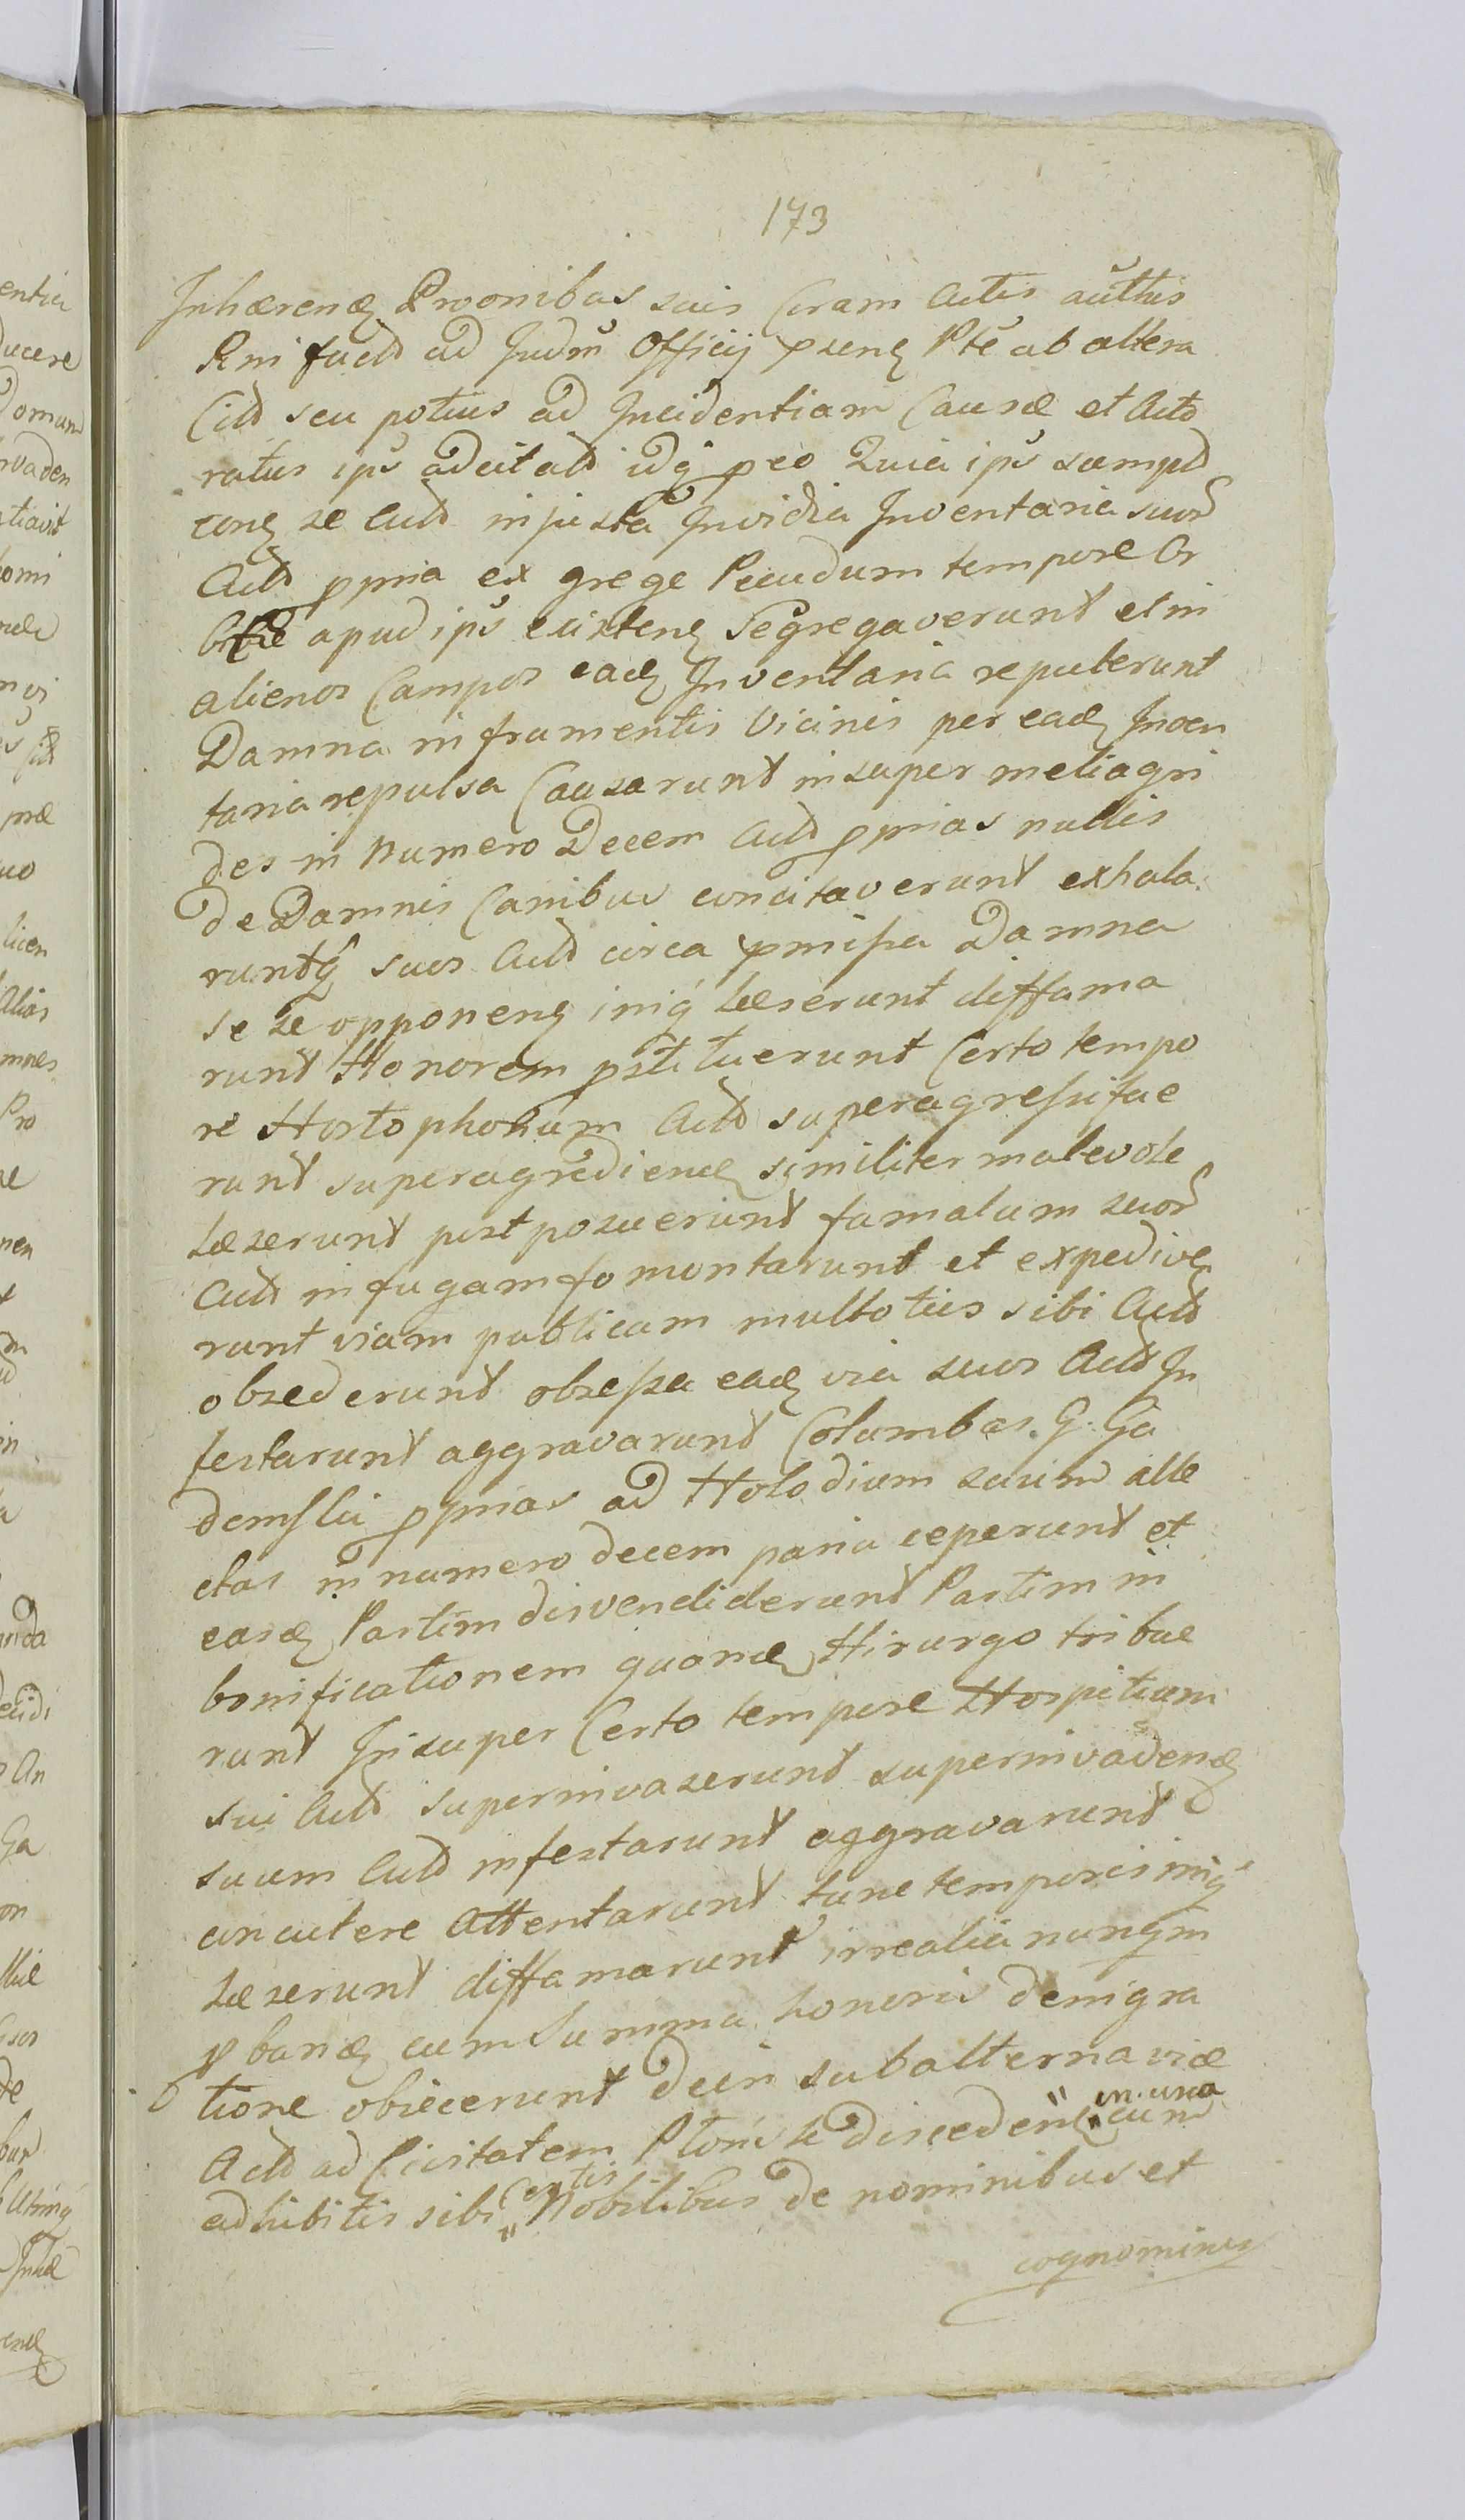 173
Inhærendę Proonibus suis Coram Actis authis
Rni factd ad Judm Officij pseng Pte ab altera
Citd seu potius ad Incidentiam Causæ et Acto
ratus ips adcitatd idq peo Quia ips sumpd
cong se Actd injusta Invidia Inventaria suor
Actd ppria ex grege Pecudum tempore Or
apud ips existeng Segregaverunt et in
alienos Campos eadę Inventaria repulerunt
Damna in frumentis Vicinis per eadę Inven
taria repulsa Causarunt insuper meliagri
des in numero Decem Actd pprias nullis
De Damnis Canibus concitaverunt exhala
runtq suos Actd circa pmissa Damna
se se opponeng iniq læserunt diffama
runt Honorem pstituerunt Certo tempo
re Hortophonum Actd superagressi fue
runt superagrediendę similiter malevole
læserunt postposuerunt famulum suor
Actd in fugam fomontarunt et expedive
runt viam publicam multoties sibi Actd
obsederunt obsessa eadę via suos Actd In
festarunt aggravarunt Columbas G. Ga
demslii pprias ad Holodium suum alle
ctas in numero decem paria ceperunt et
easdę Partim divendiderunt Partim in
bonificationem quondę Hirurgo tribue
runt Insuper Certo tempore Hospitium
sui Actd superinvaserunt superinvadendę
suum Actd infestarunt aggravarunt
concutere Attentarunt tunc temporis iniq
læserunt diffamarunt irrealia nunqm
pbandę cum Summa honoris denigra
tione obiecerunt dein subalterna vice
Actd ad Civitatem discedent " in una cum
adhibitis sibi " Certis Nobilibus de nominibus et
cognominę